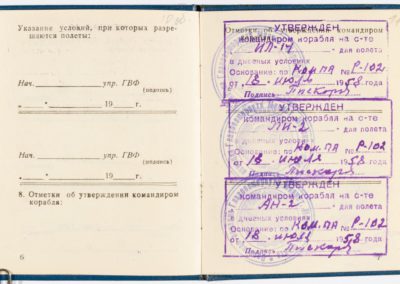 Указание условий, при которых разре-
шаются полеты:
Нач. упр. ГВФ
(подпись)
" " 19 г.
Нач. упр. ГВФ
(подпись)
" " 19 г.
8. Отметки об утверждении командиром
корабля:
6
Отметки об утверждении командиром
УТВЕРЖДЕН
командиром корабля на с-те
ИЛ-14 - для полета
в дневных условиях
Основание: по КОМ.ПА № Р-102
от 18 июля 1958 года
Подпись
УТВЕРЖДЕН
командиром корабля на с-те
ЛИ-2 - для полета
в дневных условиях
Основание: по КОМ.ПА № Р-102
от 18 июля 1958 года
Подпись
УТВЕРЖДЕН
командиром корабля на с-те
АН-2 - для полета
в дневных условиях
Основание: по КОМ.ПА № Р-102
от 18 июля 1958 года
Подпись